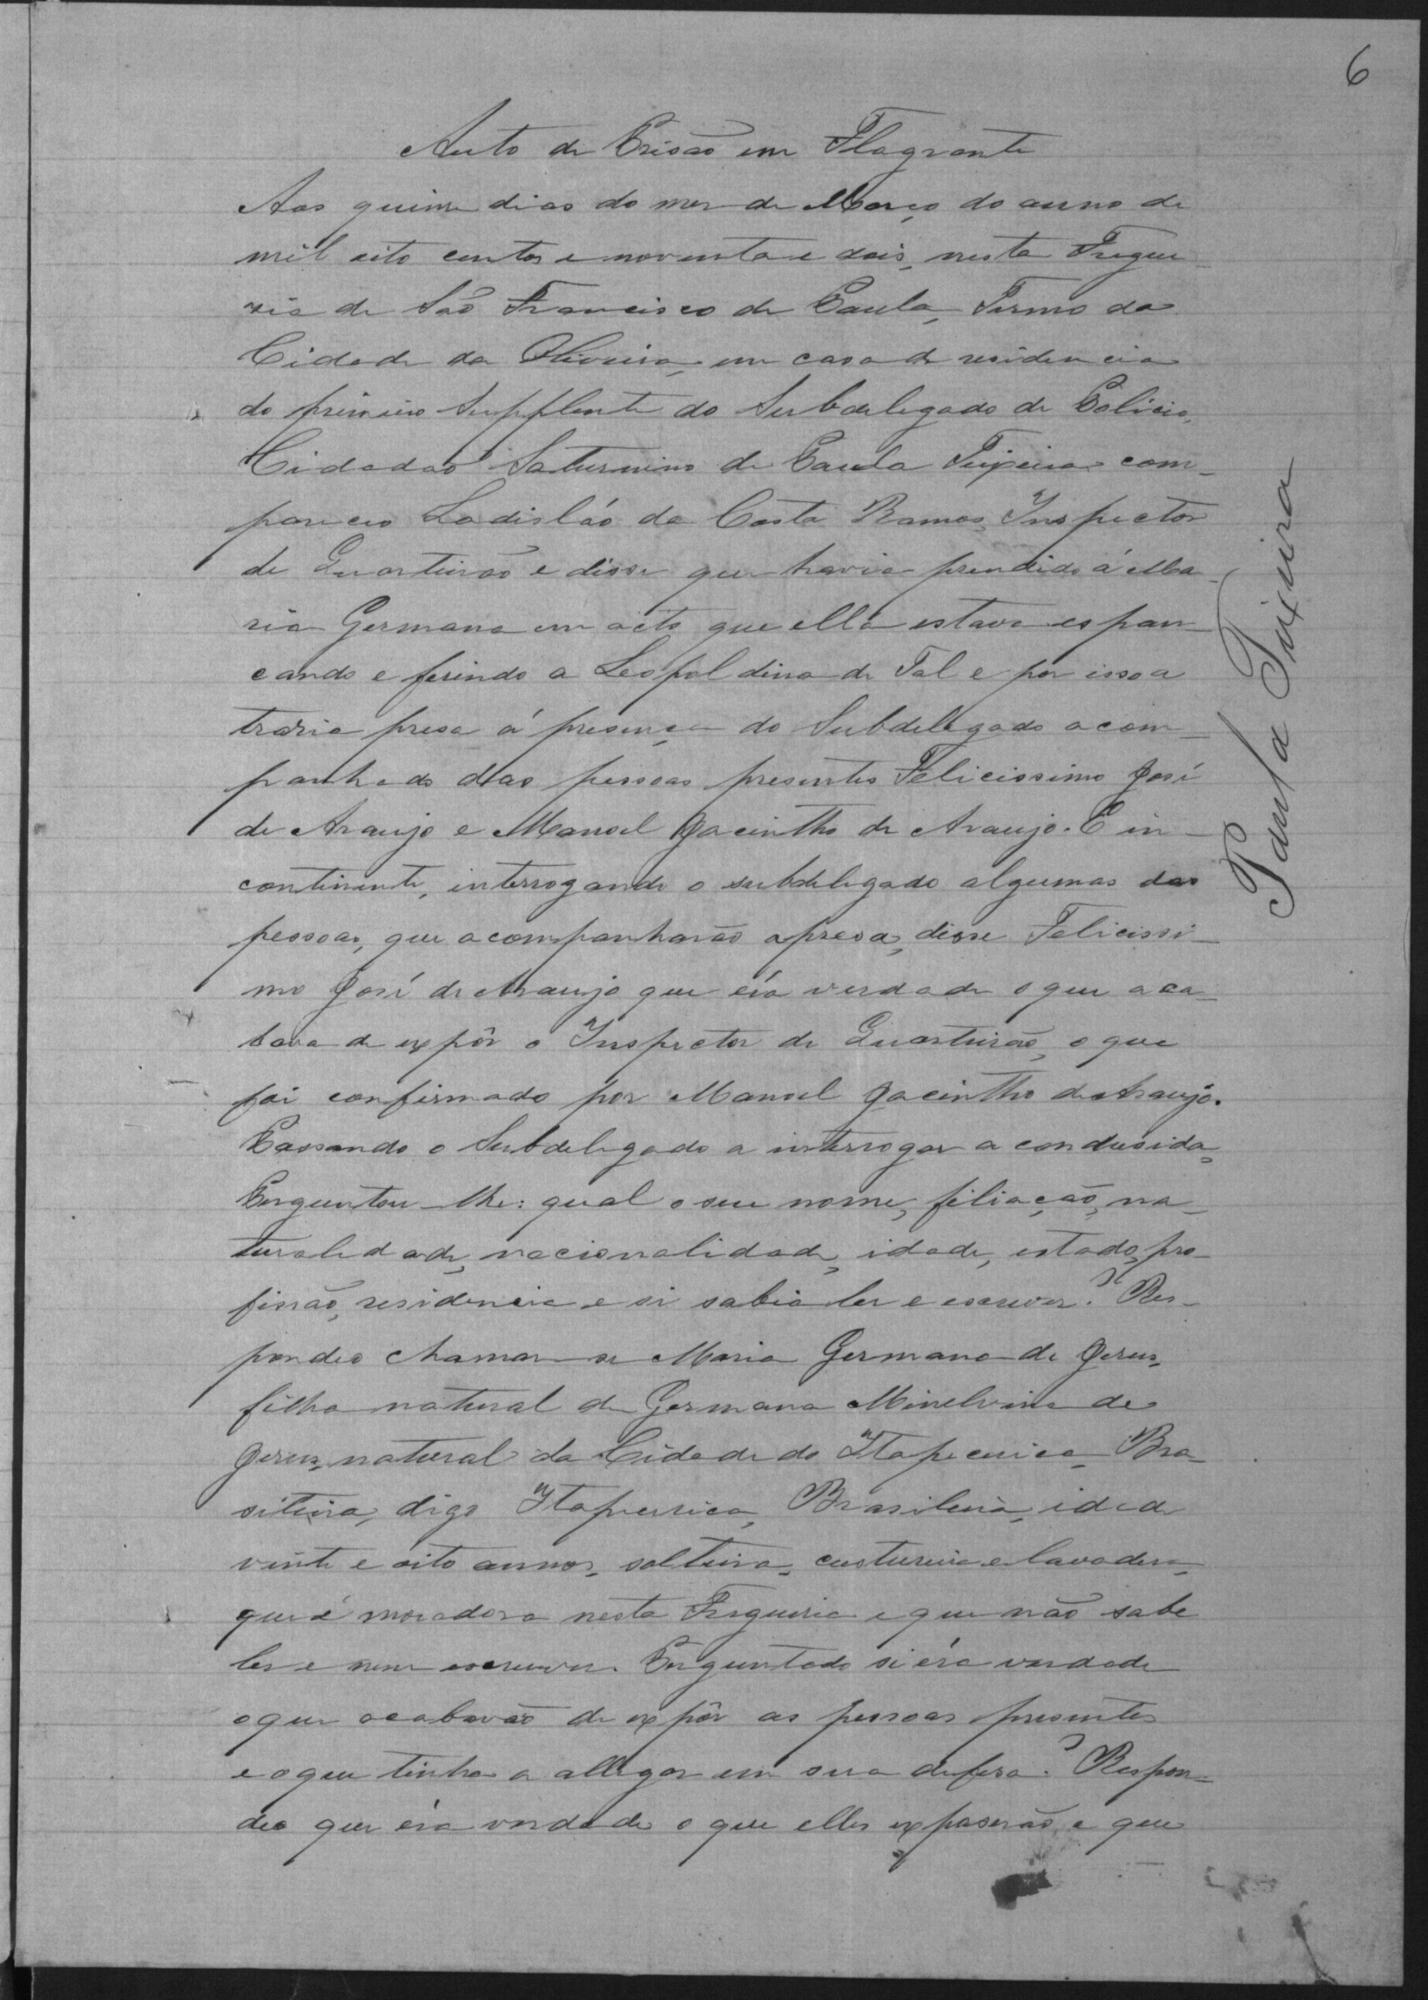 6
Auto de Prisão em Flagrante
Aos quinse dias do mes de Março do anno de
mil oito centos e noventa e dois, nesta Fregue-
sia de São Francisco de Paula, Termo da
Cidade da Oliveira, em casa de residencia
do primeiro Supplente do Subdelegado de Policia,
Cidadão Saturnino de Paula Teixeira com-
pareceo Ladisláo da Costa Ramos, Inspector
de Quarteirão e disse que havia prendido á Ma-
ria Germana em acto que ella estava espan-
cando e ferindo a Leopoldina de Tal e por isso a
traria presa á presença do Subdelegado acom-
panhado das pessoas presentes Felicissimo José
de Araujo e Manoel Jacintho de Araujo. E in-
continente, interrogando o subdelegado algumas das
pessoas, que acompanharão a presa, disse Felicissi-
mo José de Araujo que éra verdade o que aca-
bava de expôr o Inspector de Quarteirão, o que
foi confirmado por Manoel Jacintho de Araujo.
Passando o Subdelegado a interrogar a condusida,
Perguntou-lhe: qual o seu nome, filiação, na-
turalidade, nacionalidade, idade, estado, pro-
fissão, residencia e si sabia ler e escrever? Res-
pondeo chamar-se Maria Germana de Jesus,
filha natural de Germana Minelvina de
Jesus, natural da Cidade do Itapecerica, Bra-
sileira, digo Itapecerica, Brasileira, idade
vinte e oito annos, solteira, custureira e lavadera,
que é moradora nesta Freguesia e que não sabe
ler e nem escrever. Perguntado si éra verdade
o que acabavão de expôr as pessoas presentes
e o que tinha a allegar em sua defesa? Respon-
deo que éra verdade o que elles exposerão e que
Paula Teixeira